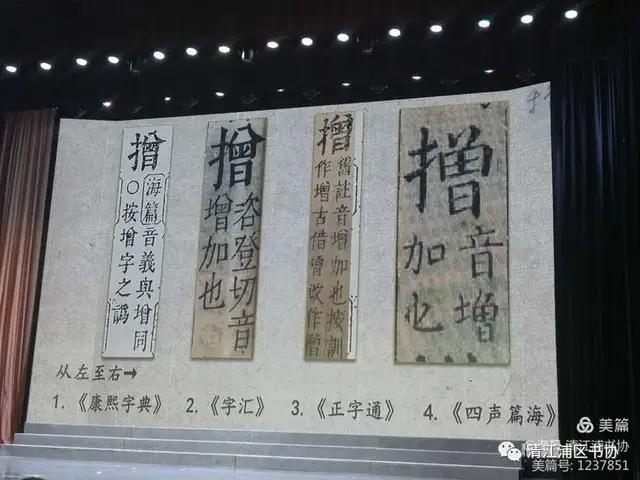 海篇音義與增同
○按增字之譌
咨登切音
增加也
舊註音增加也按訓
作增古借曾改作
音增
加也
从左至右→
1.《康熙字典》 2.《字汇》 3.《正字通》 4.《四声篇海》
美篇
清江浦区书协
美篇号: 1237851